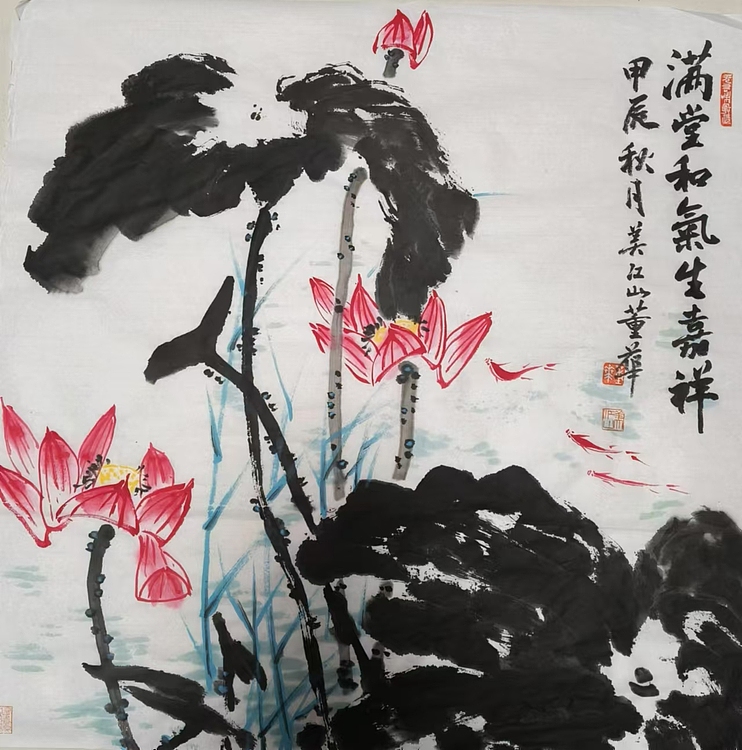 满堂和氣生嘉祥
甲辰秋月美江山董華